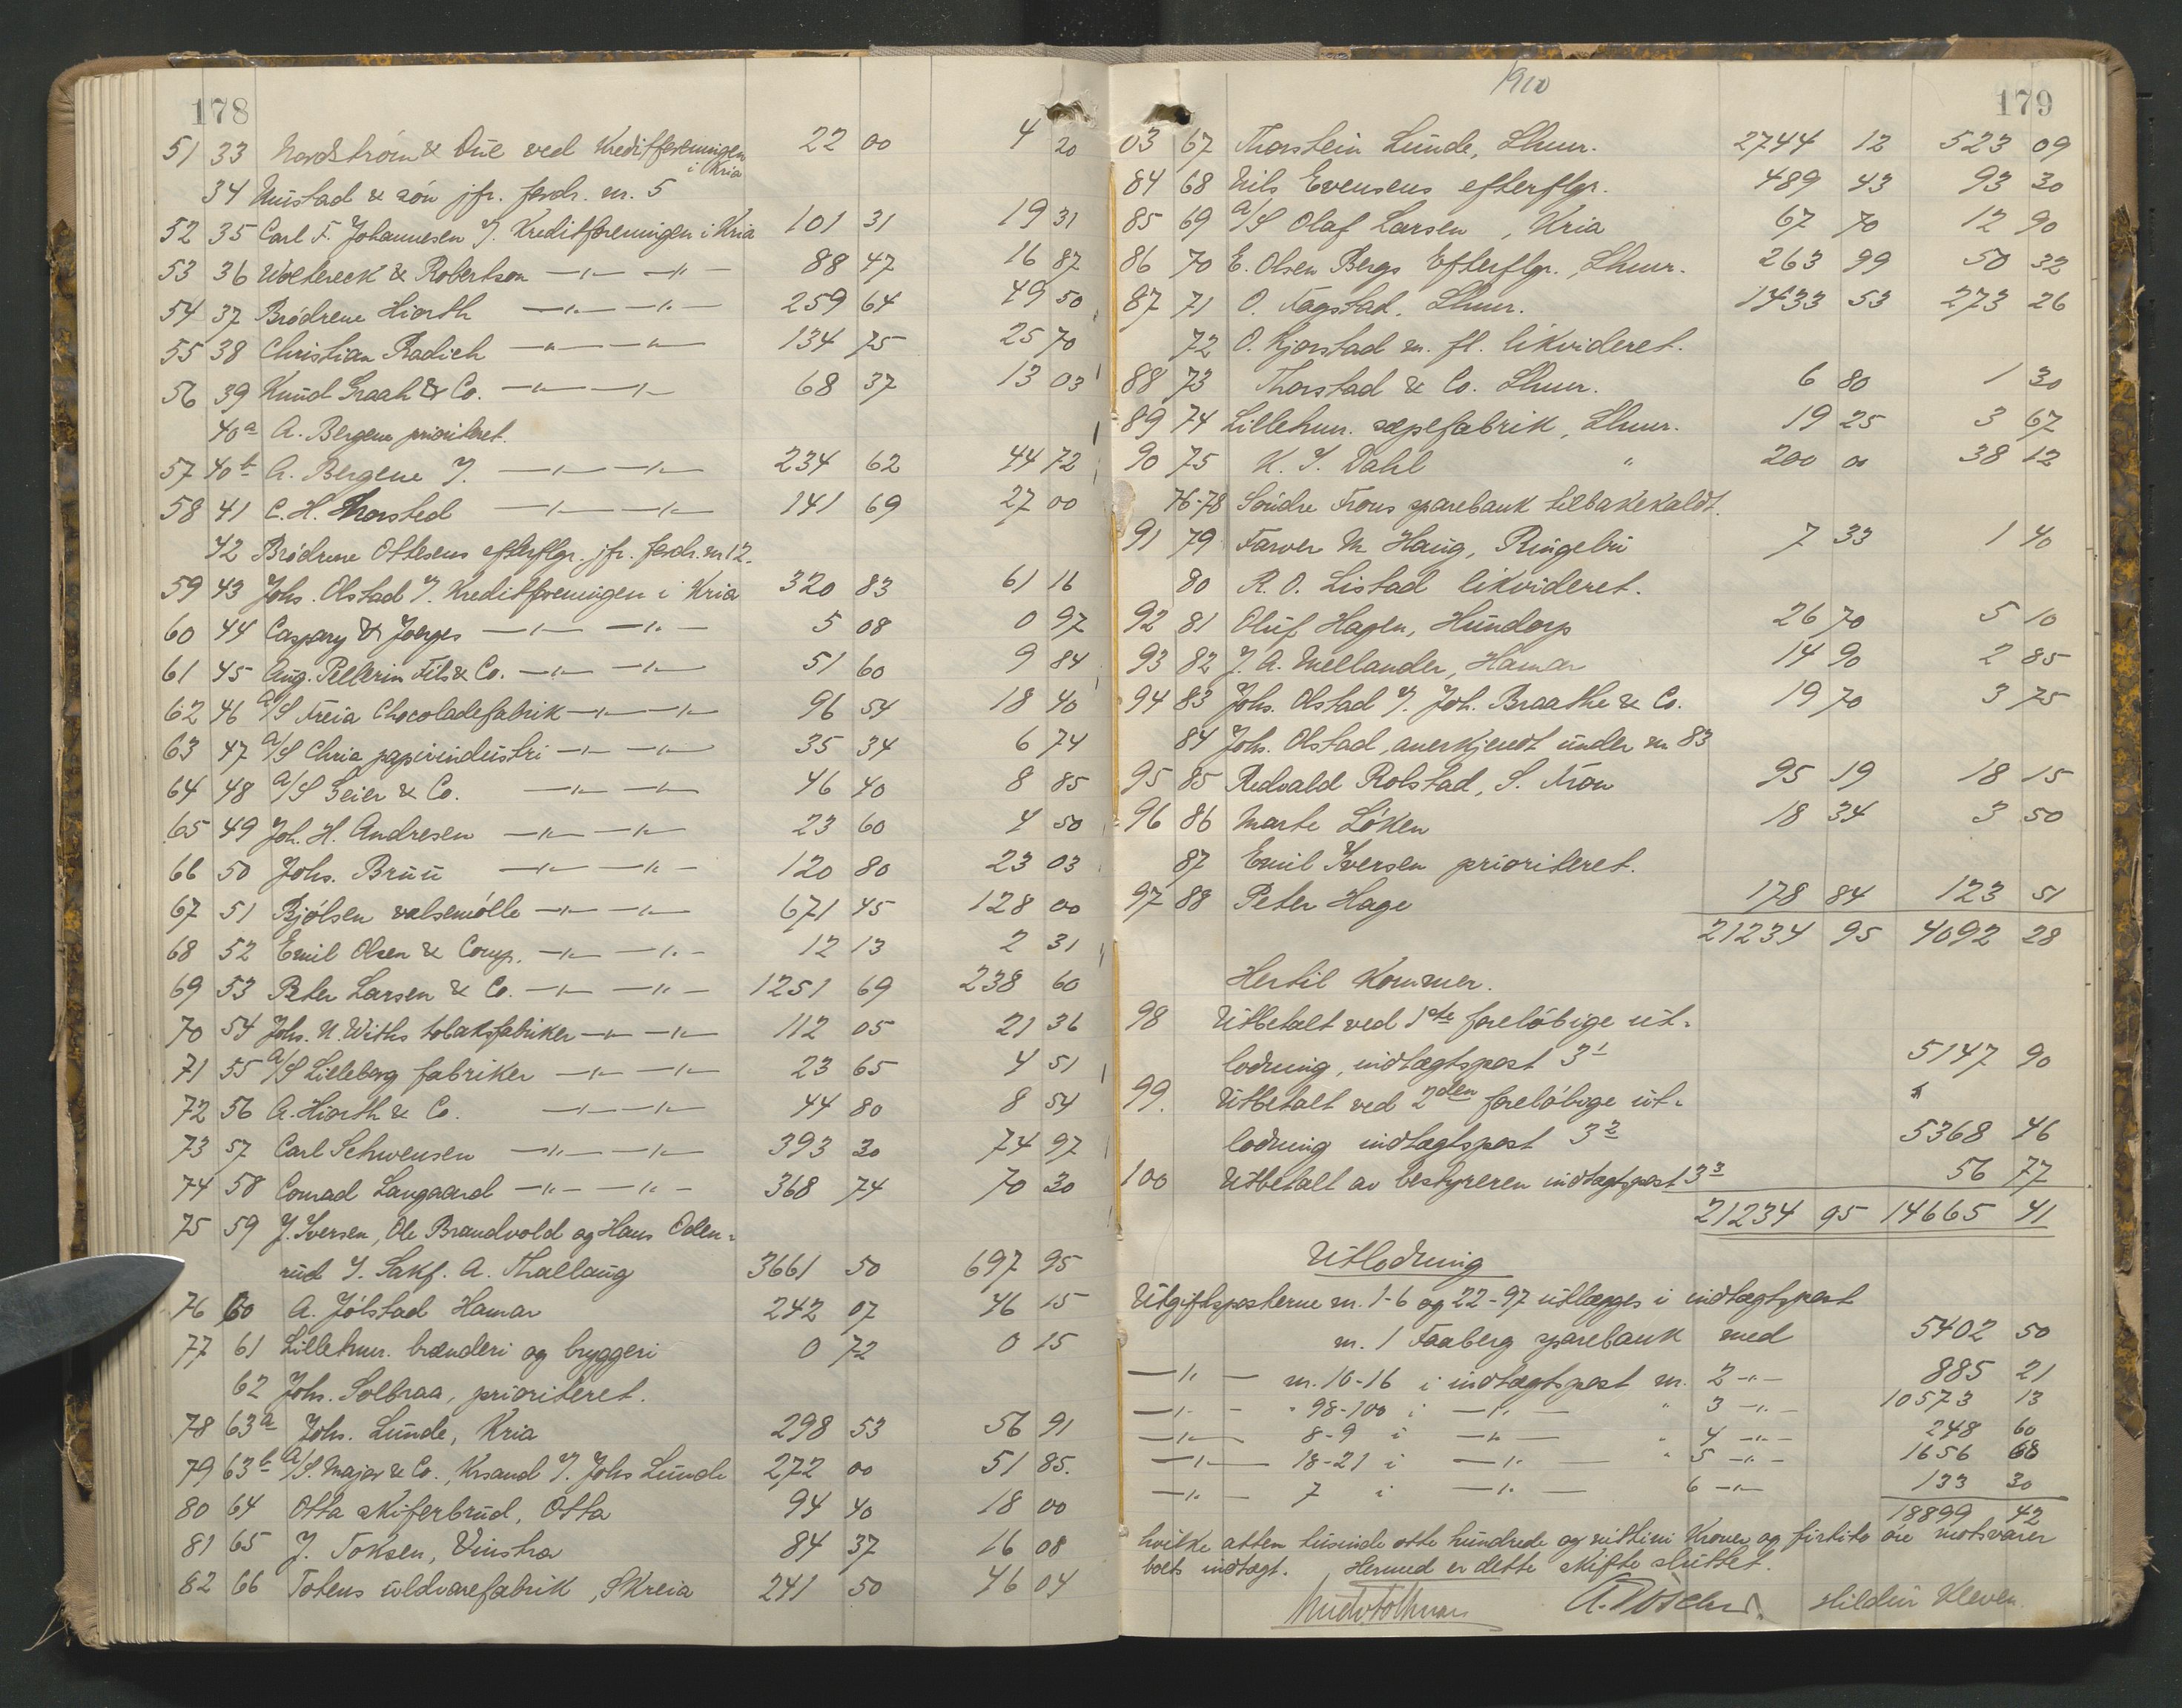 178
51 33 Nordström & Due ved Kreditforeningen 22 00 4 20
i Kria
34 Mustad & søn jfr. fordr. nr. 5
52 35 Carl F. Johannesen v. Kreditforeningen i Kria 101 31 19 31
53 36 Woltereck & Robertson —"— —"— 88 47 16 87
54 37 Brødrene Hiorth —"— —"— 259 64 49 50
55 38 Christian Radich —"— —"— 134 75 25 70
56 39 Knud Graah & Co. —"— —"— 68 37 13 03
40a A. Bergene prioriteret.
57 40b A. Bergene v. —"— —"— 234 62 44 72
58 41 C. H. Thorsted —"— —"— 141 69 27 00
42 Brødrene Ottesens efterflgr. jfr. fordr. nr 12.
59 43 Johs. Olstad v. Kreditforeningen i Kria 320 83 61 16
60 44 Caspary & Joerges —"— —"— 5 08 0 97
61 45 Aug. Pellerin Fils & Co. —"— —"— 51 60 9 84
62 46 A/S Freia Chocoladefabrik —"— —"— 96 54 18 40
63 47 A/S Chria papirindustri —"— —"— 35 34 6 74
64 48 A/S Geier & Co. —"— —"— 46 40 8 85
65 49 Joh. H. Andresen —"— —"— 23 60 4 50
66 50 Johs. Bruu —"— —"— 120 80 23 03
67 51 Bjølsen valsemølle —"— —"— 671 45 128 00
68 52 Emil Olsen & Comp. —"— —"— 12 13 2 31
69 53 Peter Larsen & Co. —"— —"— 1251 69 238 60
70 54 Johs. N. Withs tobaksfabriker —"— —"— 112 05 21 36
71 55 A/S Lilleborg fabriker —"— —"— 23 65 4 51
72 56 A. Hiorth & Co. —"— —"— 44 80 8 54
73 57 Carl Schwensen —"— —"— 393 30 74 97
74 58 Conrad Langaard —"— —"— 368 74 70 30
75 59 J. Iversen, Ole Brandvold og Hans Oden-
rud v. Sakf. A. Thallaug 3661 50 697 95
76 60 A. Jølstad Hamar 242 07 46 15
77 61 Lillehmr. brænderi og bryggeri 0 72 0 15
62 Johs. Solbraa, prioriteret.
78 63a Johs. Lunde, Kria 298 53 56 91
79 63b A/S. Major & Co., Krsand v. Johs Lunde 272 00 51 85.
80 64 Otta skiferbrud, Otta 94 40 18 00
81 65 J. Toksen, Vinstra 84 37 16 08
82 66 Totens uldvarefabrik, Skreia 241 50 46 04
1910
179
03 67 Thorstein Lunde, Lhmr. 2744 12 523 09
84 68 Nils Evensens efterflgr. 489 43 93 30
85 69 A/S Olaf Larsen, Kria 67 70 12 90
86 70 E. Olsen Bergs Efterflgr. Lhmr. 263 99 50 32
87 71 O. Fagstad. Lhmr. 1433 53 273 26
72 O. Kjorstad m. fl. likvideret.
88 73 Thorstad & Co. Lhmr. 6 80 1 30
89 74 Lillehmr. sæpefabrik, Lhmr. 19 25 3 67
90 75 K. J. Dahl " 200 00 38 12
76-78 Søndre Frons sparebank tilbakekaldt.
91 79 Farver M Haug, Ringebu 7 33 1 40
80 R. O. Listad likvideret.
92 81 Oluf Hagen, Hundorp 26 70 5 10
93 82 J. A. Mellander, Hamar 14 90 2 85
94 83 Johs. Olstad v. Joh. Braathe & Co. 19 70 3 75
84 Johs. Olstad, anerkjendt under nr 83
95 85 Redvald Rolstad, S. Fron 95 19 18 15
96 86 Marte Løken 18 34 3 50
87 Emil Iversen prioriteret.
97 88 Peter Hage 178 84 123 51
21234 95 4092 28
Hertil kommer.
98 Utbetalt ved 1ste foreløbige ut-
lodning, indtægtspost 3 1 5147 90
99. Utbetalt ved 2den foreløbige ut-
lodning indtægtspost 3 2 5368 46
100 Utbetalt av bestyreren indtægtspost 3 3 56 77
21234 95 14665 41
Utlodning
Utgiftsposterne nr. 1-6 og 22-97 utlægges i indtægtspost
nr. 1 Faaberg sparebank med 5402 50
—"— nr. 10-16 i indtægtspost nr. 2 —"— 885 21
—"— " 98-100 i —"— " 3 —"— 10573 13
—"— 8-9 i —"— " 4 —"— 248 60
—"— 18-21 i —"— " 5 —"— 1656 68
—"— 7 i —"— 6 —"— 133 30
18899 42
hvilke atten tusinde otte hundrede og nittini kroner og førtito øre motsvarer
boets indtægt. Hermed er dette skifte sluttet.
Hildur Kleven.